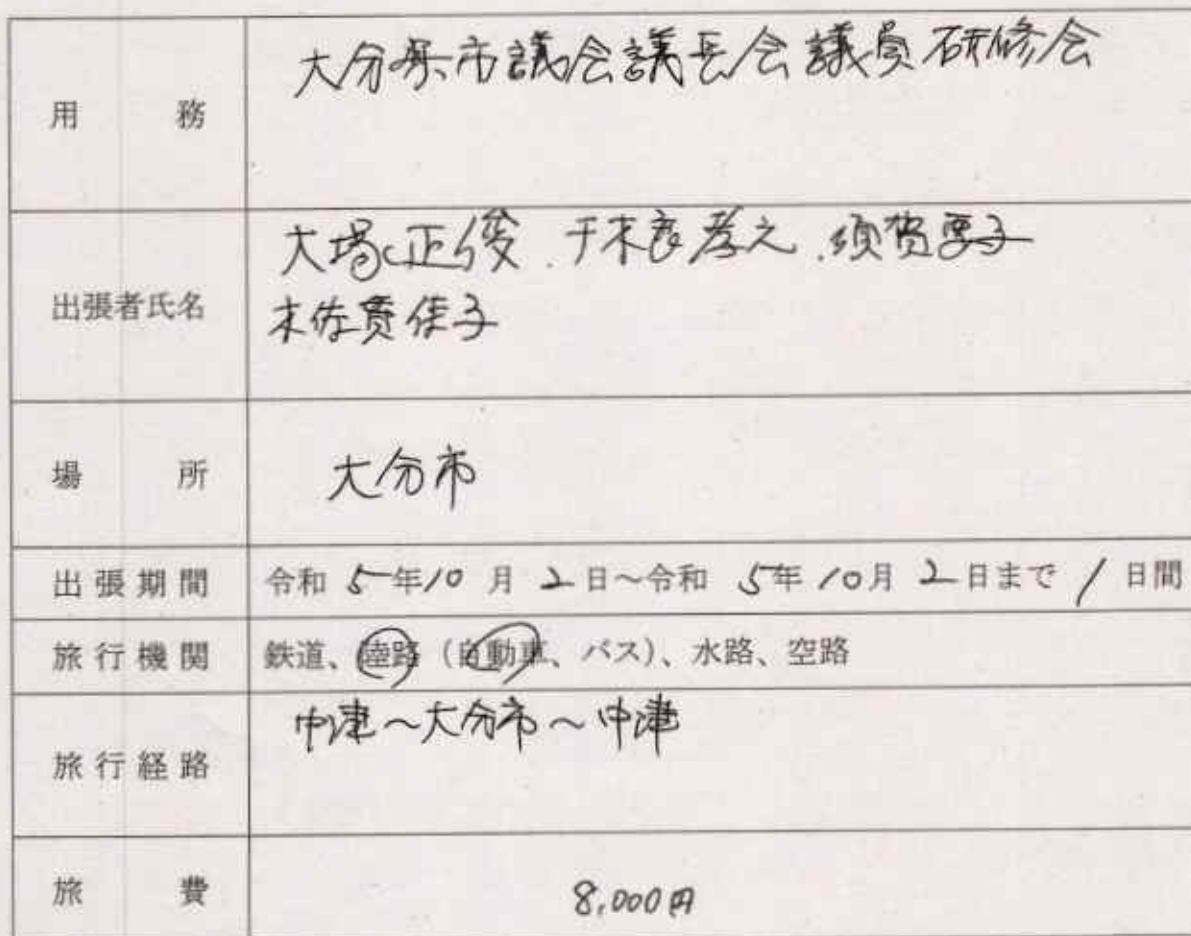 用務 大分県市議会議長会議員研修会
出張者氏名 大塲正俊、千木良孝之、須賀要子
木佐貫佳子
場所 大分市
出張期間 令和5年10月2日~令和5年10月2日まで1日間
旅行機関 鉄道、陸路(自動車、バス)、水路、空路
旅行経路 中津~大分市~中津
旅費 8,000円